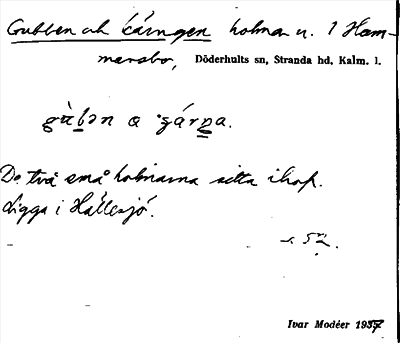 Gubben och kärngen holmar u. 1 Ham-
marsbo, Döderhults sn, Stranda hd, Kalm. l.
gùbən a ɕárṉa.
De två små holmarna sitta ihop.
Ligga i Hällesjö.
s. 52.
Ivar Modéer 1937